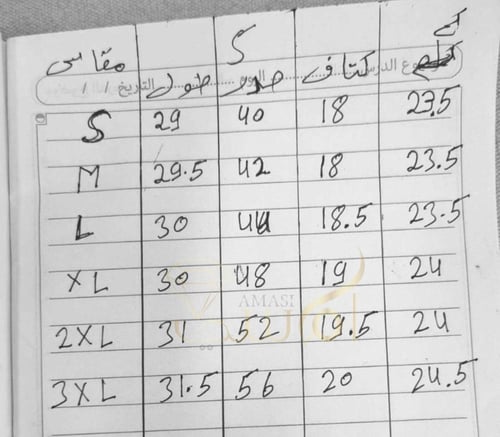 S
مقاس طول صدر كتاف كم
الدرس اليوم التاريخ / /
S 29 40 18 23.5
M 29.5 42 18 23.5
L 30 44 18.5 23.5
XL 30 48 19 24
AMASI
2XL 31 52 19.5 24
3XL 31.5 56 20 24.5